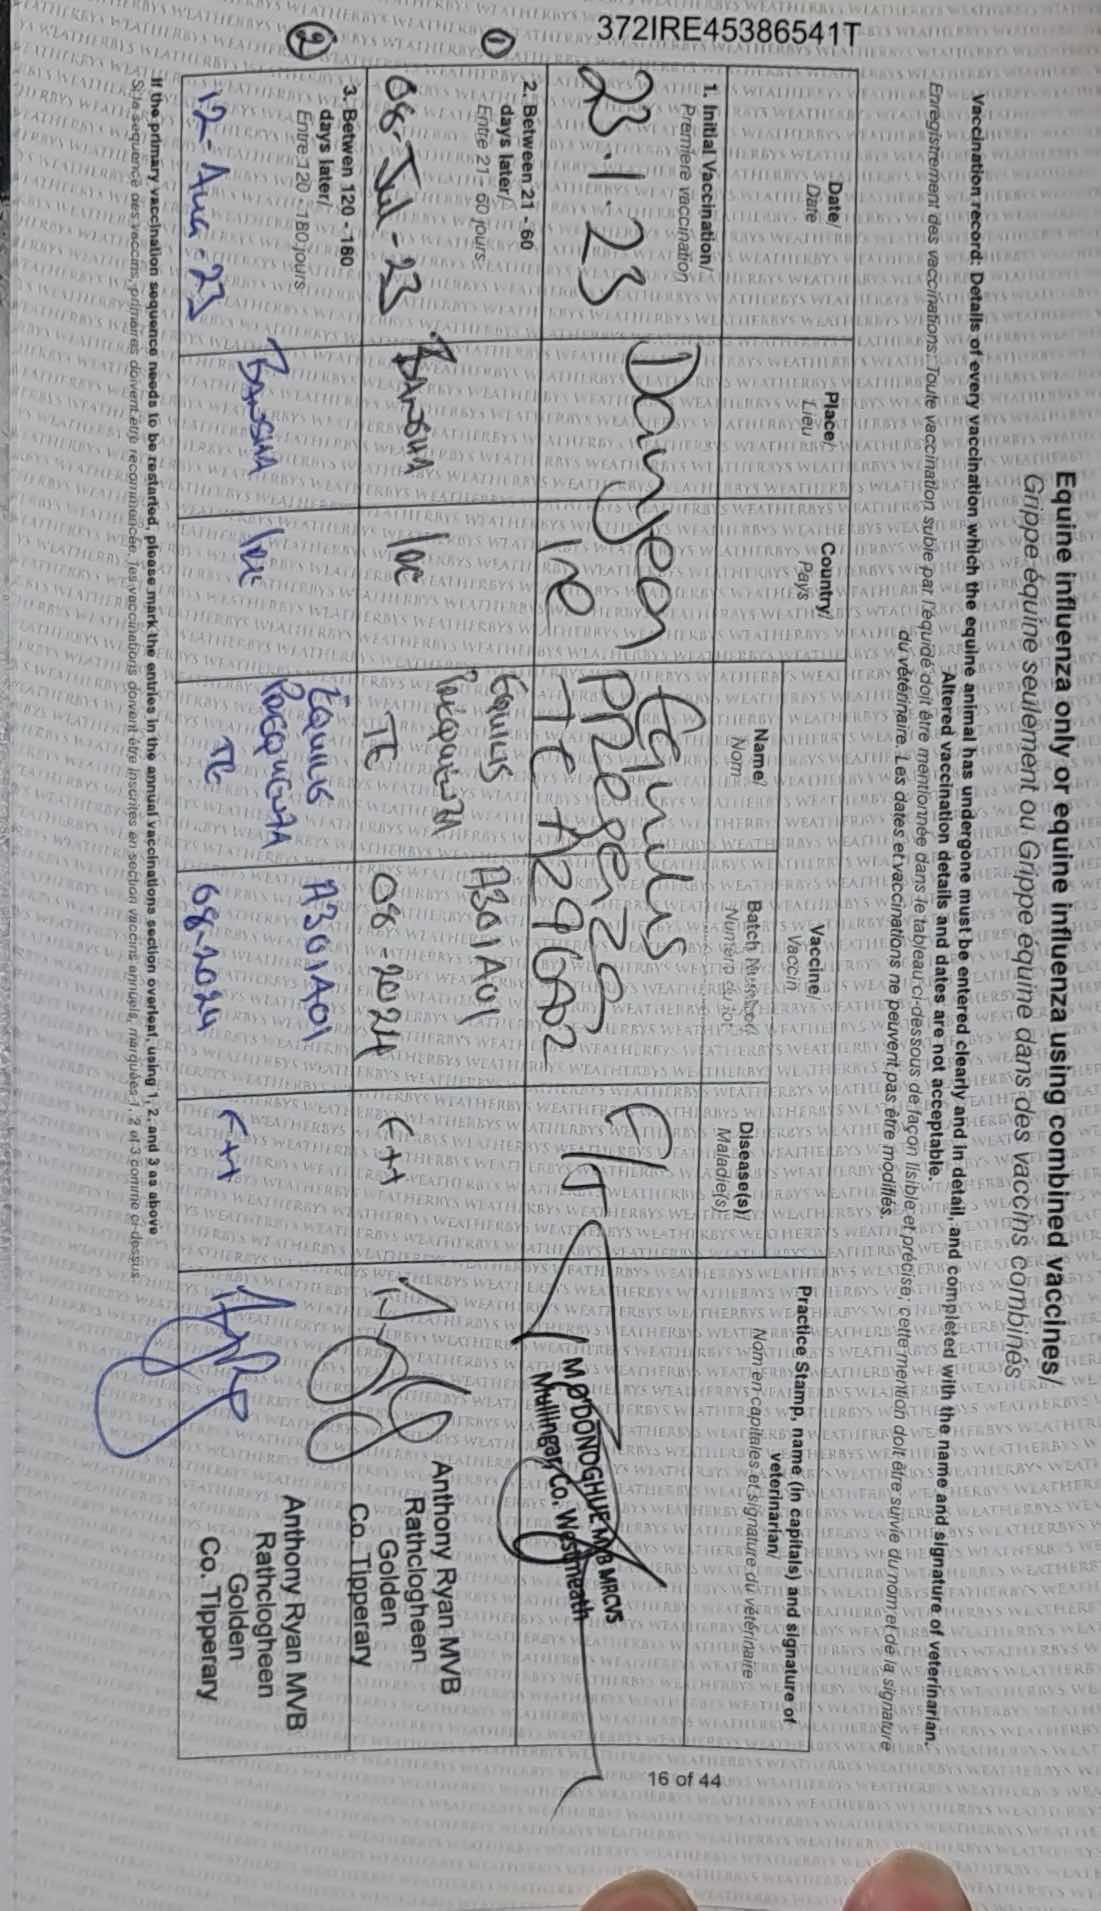 372IRE45386541T
Equine influenza only or equine influenza using combined vaccines/
Grippe équine seulement ou Grippe équine dans des vaccins combinés
Vaccination record: Details of every vaccination which the equine animal has undergone must be entered clearly and in detail, and completed with the name and signature of veterinarian.
Altered vaccination details and dates are not acceptable.
Enregistrement des vaccinations: Toute vaccination subie par l'équidé doit être mentionnée dans le tableau ci-dessous de façon lisible et précise, cette mention doit être suivie du nom et de la signature
du vétérinaire. Les dates et vaccinations ne peuvent pas être modifiés.
Date/
Date
Place/
Lieu
Country/
Pays
Vaccine/
Vaccin
Name/
Nom
Batch Number/
Numéro du lot
Disease(s)/
Maladie(s)
Practice Stamp, name (in capitals) and signature of
veterinarian/
Nom en capitales et signature du vétérinaire
1. Initial Vaccination/
Première vaccination
23.1.23
Ire
Equilus
Prezenza
TE
A296A02
F T
M O'DONOGHUE MVB MRCVS
Mullingar, Co. Westmeath
①
2. Between 21 - 60
days later/
Entre 21 - 60 jours
08-Jul-23
BANSHA
Ire
Equilis
TE
A301A01
08-2024
F+T
Anthony Ryan MVB
Rathclogheen
Golden
Co. Tipperary
②
3. Between 120 - 180
days later/
Entre 120 - 180 jours
12-Aug-23
BANSHA
Ire
Equilis
TE
A301A01
08-2024
F+T
Anthony Ryan MVB
Rathclogheen
Golden
Co. Tipperary
If the primary vaccination sequence needs to be restarted, please mark the entries in the annual vaccinations section overleaf, using 1, 2, and 3 as above
Si la séquence des vaccins primaires doivent être recommencée, les vaccinations doivent être inscrites en section vaccins annuels, marquées 1, 2 et 3 comme ci-dessus.
16 of 44